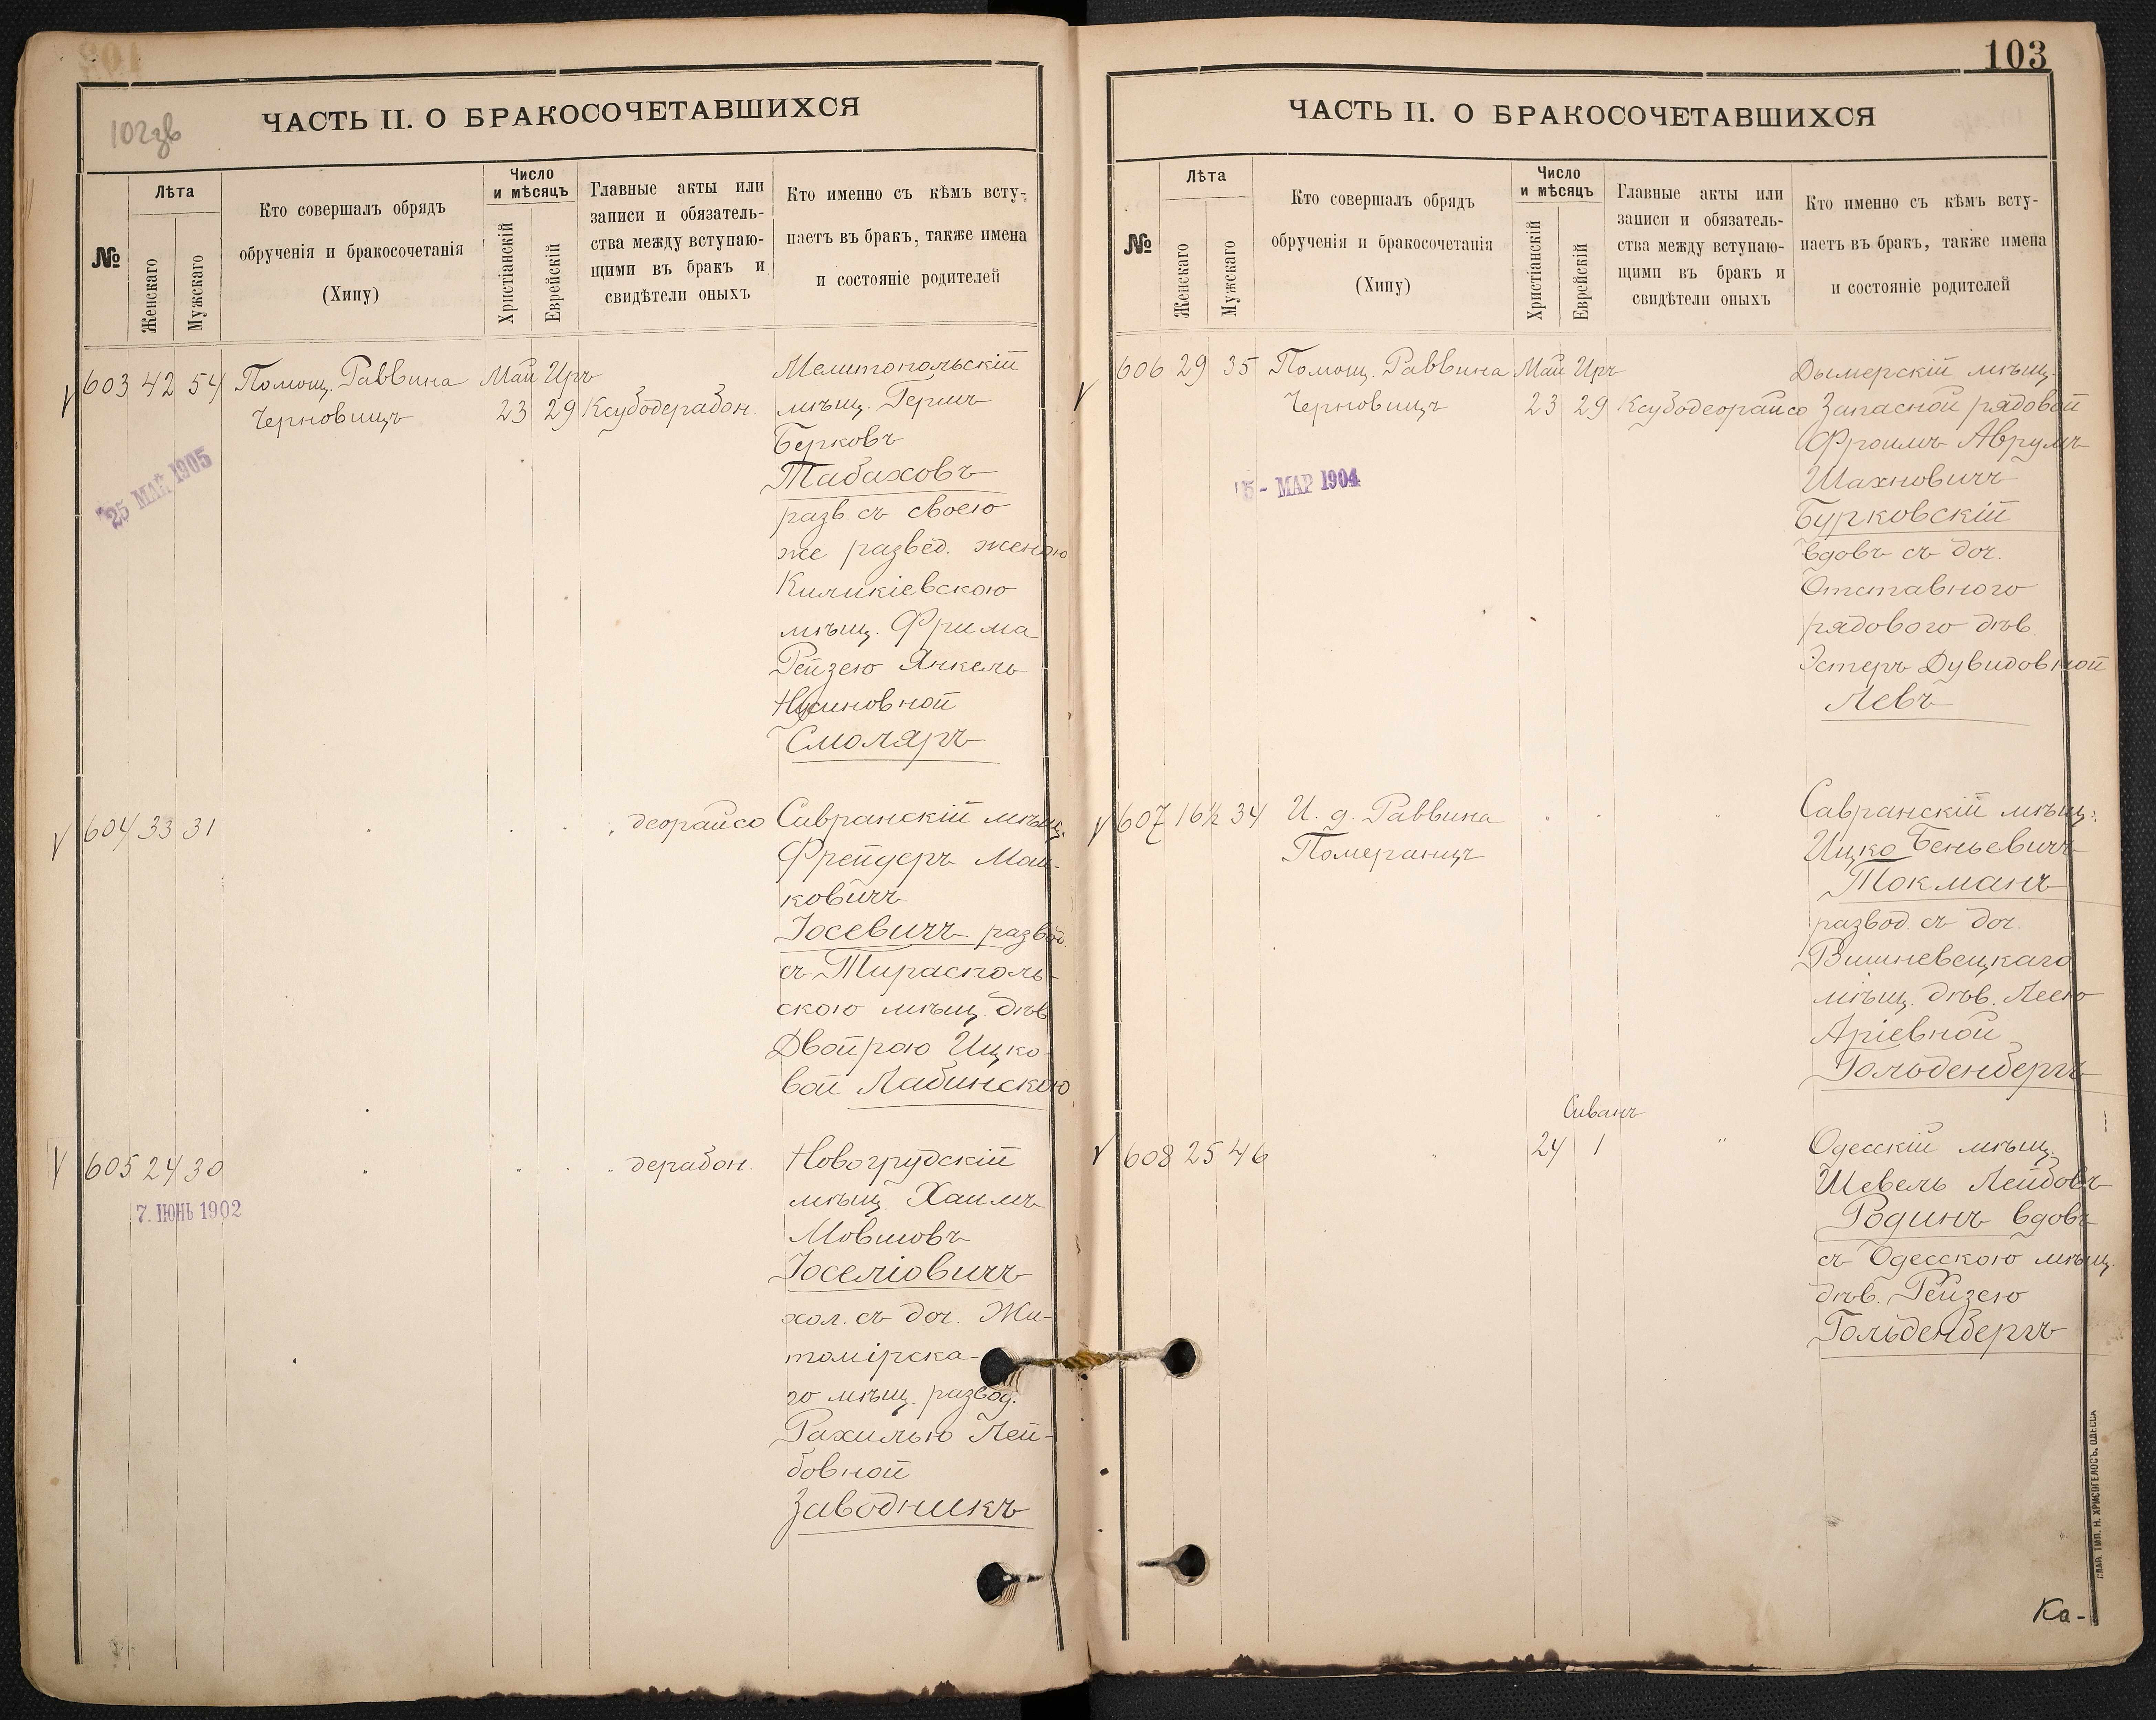 102 зв
ЧАСТЬ II. О БРАКОСОЧЕТАВШИХСЯ
№
Лѣта
Женскаго
Мужскаго
Кто совершалъ обрядъ
обрученія и бракосочетанія
(Хипу)
Число
и мѣсяцъ
Христіанскій
Еврейскій
Главные акты или
записи и обязатель-
ства между вступаю-
щими въ бракъ и
свидѣтели оныхъ
Кто именно съ кѣмъ всту-
паетъ въ бракъ, также имена
и состояніе родителей
603 42 54 Помощ. Раввина Май Иръ
Черновицъ 23 29 Ксубодерабон.
25 МАЙ 1905
Мелитопольскій
мѣщ. Гершъ
Берковъ
Табаховъ
разв. съ своею
же развед. женою
Киликіевскою
мѣщ. Фрима
Рейзею Янкель
Нусиновной
Смоляръ
604 33 31 " " " " деорайсо
Савранскій мѣщ.
Фрейдеръ Мош-
ковичъ
Іосевичъ развод.
съ Тирасполь-
скою мѣщ. дѣв.
Двойрою Ицко-
вой Лабинскою
605 24 30 " " " " дерабон.
7. ІЮНЬ 1902
Новогрудскій
мѣщ. Хаимъ
Мовшовъ
Іоселіовичъ
хол. съ доч. Жи-
томірска-
го мѣщ. развод.
Рахилью Лей-
бовной
Заводникъ
103
ЧАСТЬ II. О БРАКОСОЧЕТАВШИХСЯ
№
Лѣта
Женскаго
Мужскаго
Кто совершалъ обрядъ
обрученія и бракосочетанія
(Хипу)
Число
и мѣсяцъ
Христіанскій
Еврейскій
Главные акты или
записи и обязатель-
ства между вступаю-
щими въ бракъ и
свидѣтели оныхъ
Кто именно съ кѣмъ всту-
паетъ въ бракъ, также имена
и состояніе родителей
606 29 35 Помощ. Раввина Май Иръ
Черновицъ 23 29 Ксубодеорайсо
5 - МАР 1904
Дымерскій мѣщ.
Запасной рядовой
Фроимъ Аврумъ
Шахновичъ
Бурковскій
вдовъ съ доч.
Отставного
рядового дѣв.
Эстеръ Дувидовной
Левъ
607 16½ 34 И. д. Раввина " " "
Померанцъ
Савранскій мѣщ.
Ицко Беньевичъ
Токманъ
развод. съ доч.
Вишневецкаго
мѣщ. дѣв. Леею
Аріевной
Гольденбергъ
Сиванъ
608 25 46 " 24 1 "
Одесскій мѣщ.
Шевель Лейбовъ
Родинъ вдовъ
съ Одесскою мѣщ.
дѣв. Рейзею
Гольденбергъ
СЛАВ. ТИП. Н. ХРИСОГЕЛОСЪ, ОДЕССА
Ка-